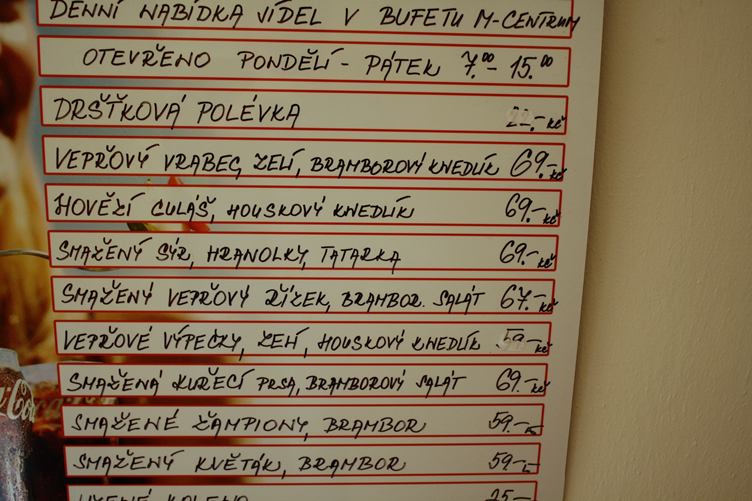 DENNÍ NABÍDKA JÍDEL V BUFETU M-CENTRUM
OTEVŘENO PONDĚLÍ - PÁTEK 7.00 - 15.00
DRŠŤKOVÁ POLÉVKA 22.- Kč
VEPŘOVÝ VRABEC, ZELÍ, BRAMBOROVÝ KNEDLÍK 69.- Kč
HOVĚZÍ GULÁŠ, HOUSKOVÝ KNEDLÍK 69.- Kč
SMAŽENÝ SÝR, HRANOLKY, TATARKA 69.- Kč
SMAŽENÝ VEPŘOVÝ ŘÍZEK, BRAMBOR. SALÁT 67.- Kč
VEPŘOVÉ VÝPEČKY, ZELÍ, HOUSKOVÝ KNEDLÍK 59.- Kč
SMAŽENÁ KUŘECÍ PRSA, BRAMBOROVÝ SALÁT 69.- Kč
SMAŽENÉ ŽAMPIONY, BRAMBOR 59.-
SMAŽENÝ KVĚTÁK, BRAMBOR 59.-
UZENÉ KOLENO 25.-